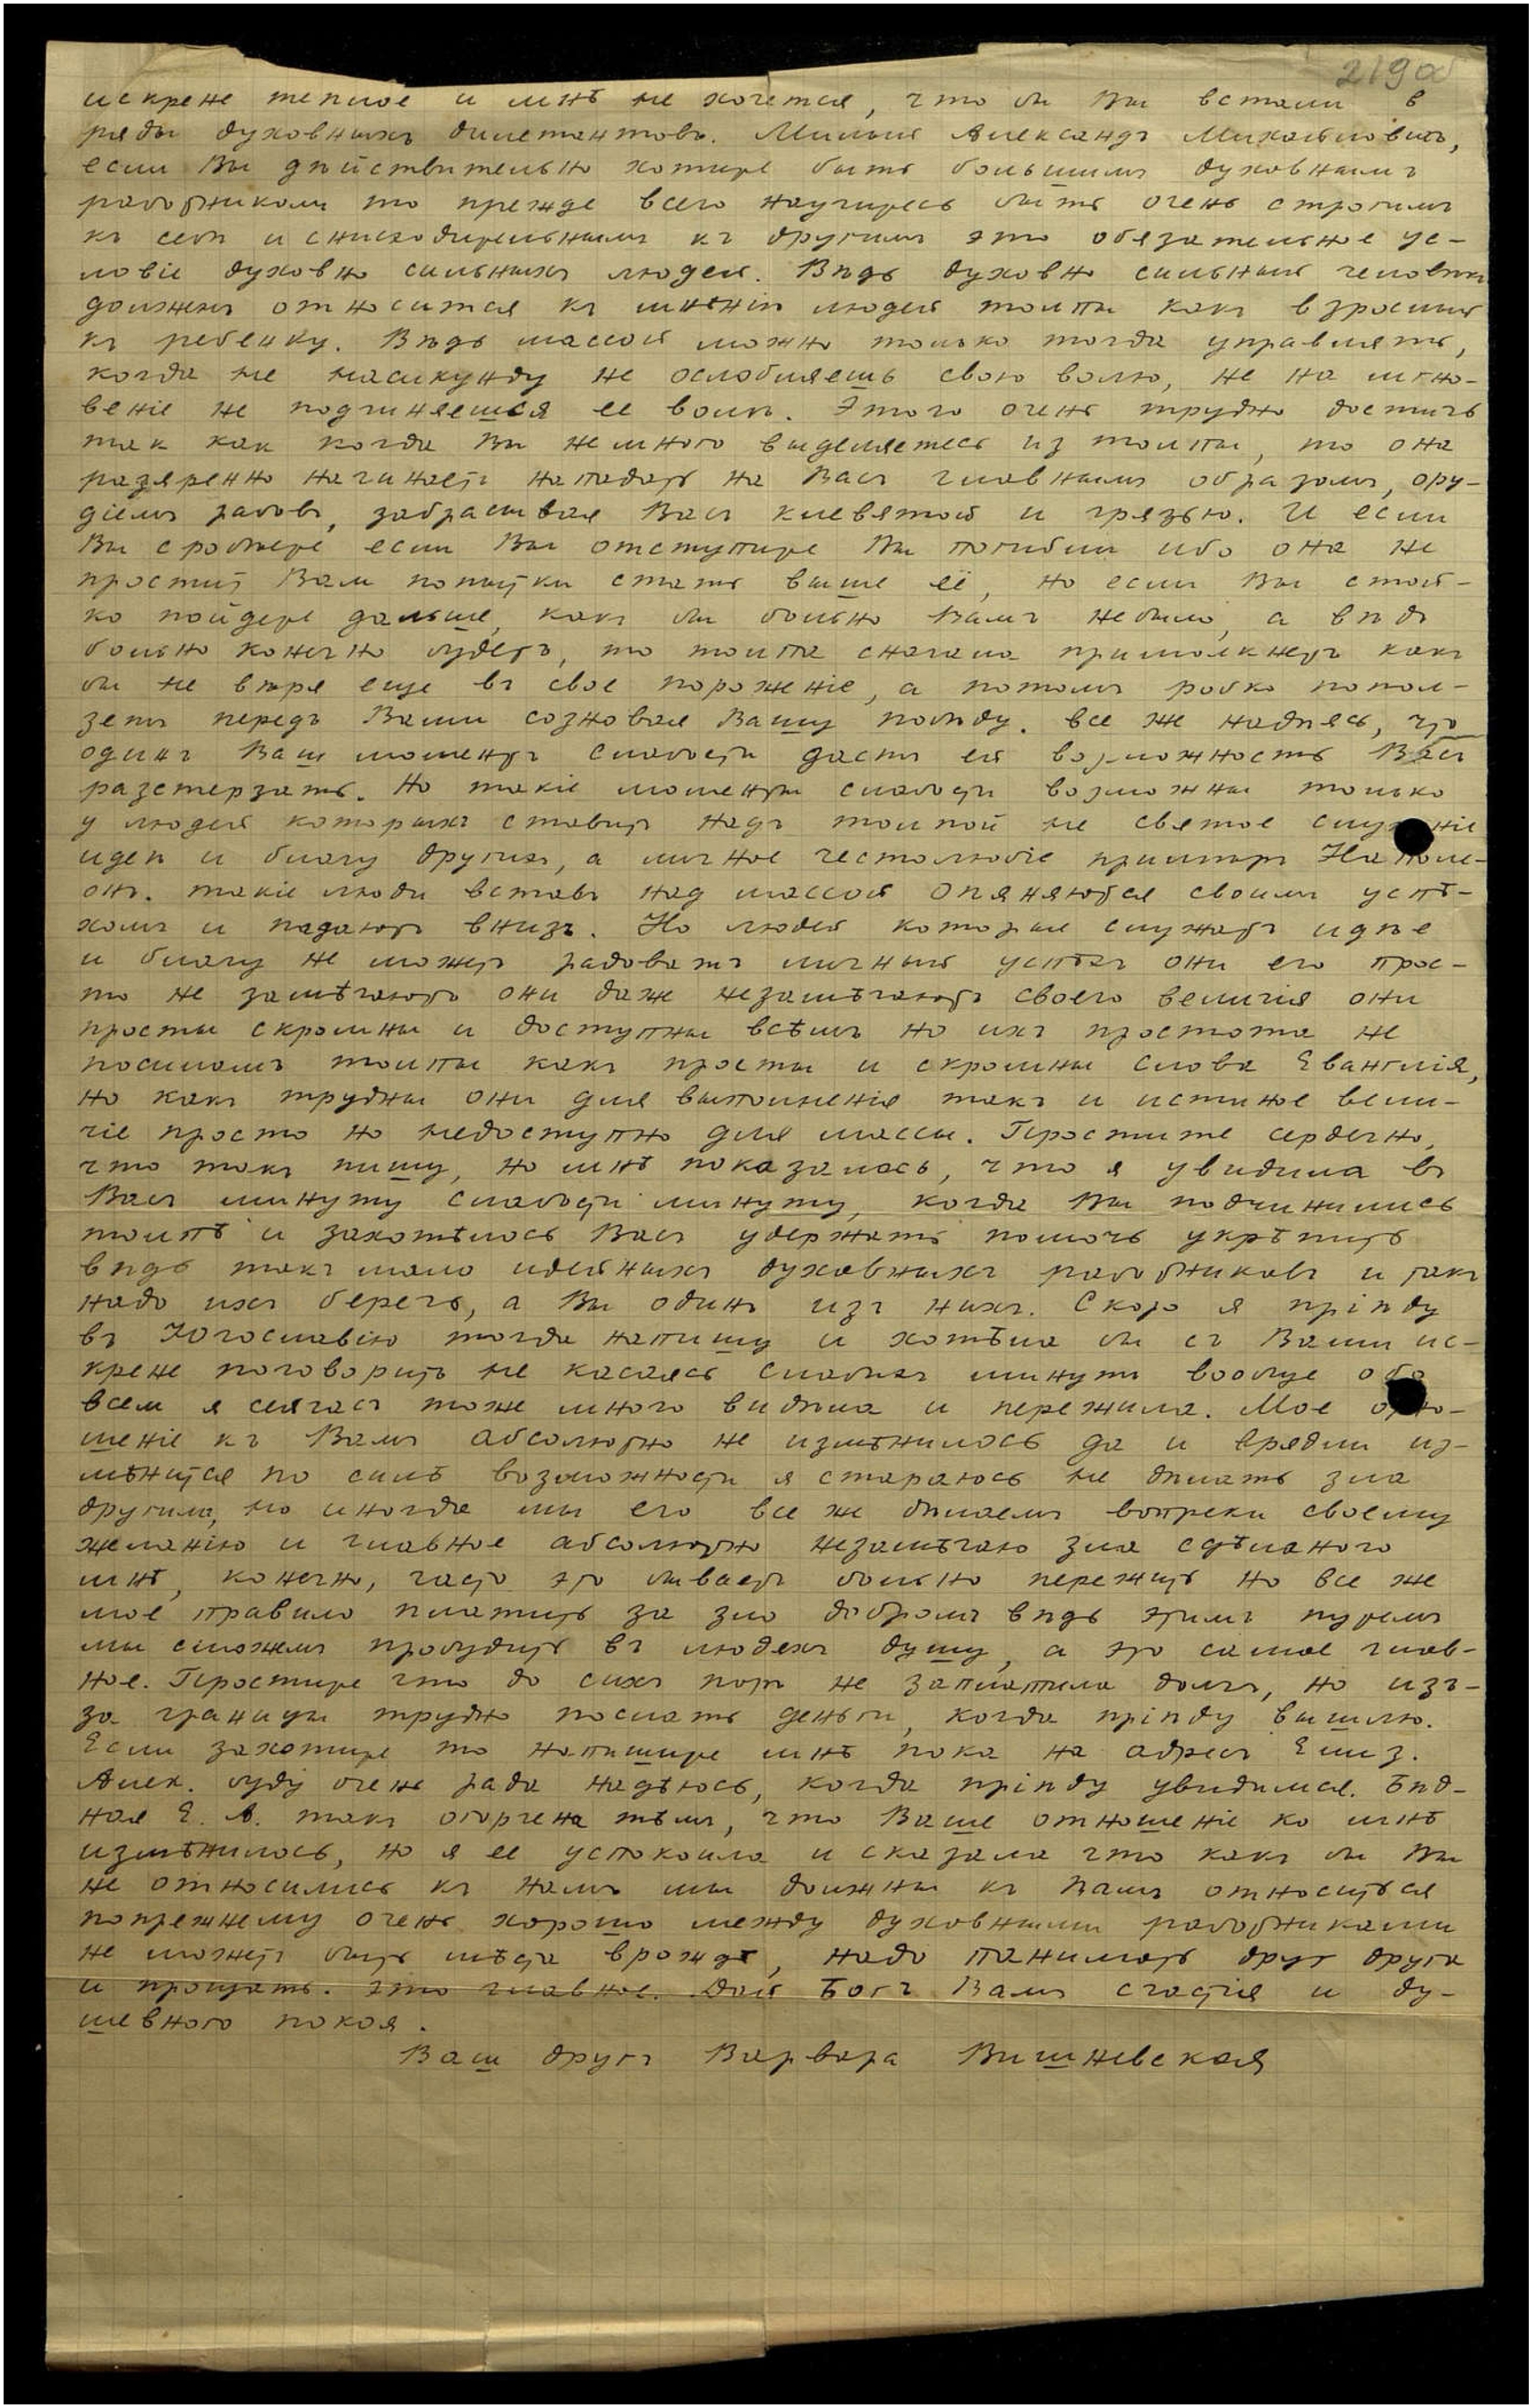 219об
искрене теплое и мнѣ не хочется, что бы Вы встали в
ряды духовныхъ дилетантовъ. Милый Александъ Михайловичъ,
если Вы дѣйствительно хотите быть большимъ духовнымъ
работникомъ то прежде всего научитесь быть очень строгимъ
къ себѣ и снисходительнымъ къ другимъ это обязательное ус-
ловіе духовно сильныхъ людей. Вѣдь духовно сильный человѣкъ
долженъ относится къ мнѣнію людей толпы какъ взрослый
къ ребенку. Вѣдь массой можно только тогда управлять,
когда не насикунду не ослобляешь свою волю, не на мгно-
веніе не подчиняешся ее волѣ. Этого очень трудно достичь
так как когда Вы немного выделяетесь из толпы, то она
разяренно начинаетъ нападать на Васъ главнымъ образомъ, ору-
діемъ рабовъ, забрасывая Васъ клевятой и грязью. И если
Вы сробѣете если Вы отступите Вы погибли ибо она не
простит Вам попытки стать выше её, но если Вы стой-
ко пойдете дальше, какъ бы больно Вамъ небыло, а вѣдь
больно конечно будетъ, то толпа сначала примолкнетъ какъ
бы не вѣря еще въ свое пороженіе, а потомъ робко попол-
зетъ передъ Вами созновая Вашу побѣду. все же надѣясь, что
одинъ Ваш моментъ слабости дастъ ей возможность Васъ
разстерзать. Но такіе моменты слабости возможны только
у людей которыхъ ставитъ надъ толпой не святое служеніе
идеѣ и благу другихъ, а личное честолюбіе примѣръ Наполе-
онъ. такіе люди вставъ над массой опяняются своимъ успѣ-
хомъ и падаютъ внизъ. Но людей которые служатъ идѣе
и благу не можетъ радовать личный успѣхъ они его прос-
то не замѣчаютъ они даже незамѣчаютъ своего величія они
просты скромны и доступны всѣмъ но ихъ простота не
посиламъ толпы какъ просты и скромны слова Еванглія,
но какъ трудны они для выполненія такъ и истиное вели-
чіе просто но недоступно для массы. Простите сердечно,
что такъ пишу, но мнѣ показалось, что я увидила въ
Васъ минуту слабости минуту, когда Вы подчинились
толпѣ и захотѣлось Васъ удержать помочь укрѣпить
вѣдь такъ мало идейныхъ духовныхъ работниковъ и такъ
надо ихъ беречь, а Вы одинъ изъ нихъ. Скоро я пріѣду
въ Югославію тогда напишу и хотѣла бы съ Вами ис-
крене поговорить не касаясь слабыхъ минутъ вообще обо
всем я сейчасъ тоже много видѣла и пережила. Мое отно-
шеніе къ Вамъ абсолютно не измѣнилось да и врядли из-
мѣнится по силѣ возможности я стараюсь не дѣлать зла
другимъ, но иногда мы его все же дѣлаемъ вопреки своему
желанію и главное абсолютно незамѣчаю зла сдѣланого
мнѣ, конечно, часто это бываетъ больно пережить но все же
мое правило платить за зло добромъ вѣдь этимъ путемъ
мы сможемъ пробудить въ людехъ душу, а это самое глав-
ное. Простите что до сихъ поръ не заплатила долгъ, но изъ-
за границы трудно послать деньги, когда пріѣду вышлю.
Если захотите то напишите мнѣ пока на адресъ Елиз.
Алек. буду очень рада надѣюсь, когда пріѣду увидимся. Бѣд-
ная Е. А. такъ огорчена тѣмъ, что Ваше отношеніе ко мнѣ
измѣнилось, но я ее успокоила и сказала что какъ бы Вы
не относились къ намъ мы должны къ Вамъ относиться
попрежнему очень хорошо между духовными работниками
не можетъ быть мѣста враждѣ, надо панимать друг друга
и прощать. Это главное. Дай Богъ Вамъ счастія и ду-
шевного покоя.
Ваш другъ Варвара Вишневская